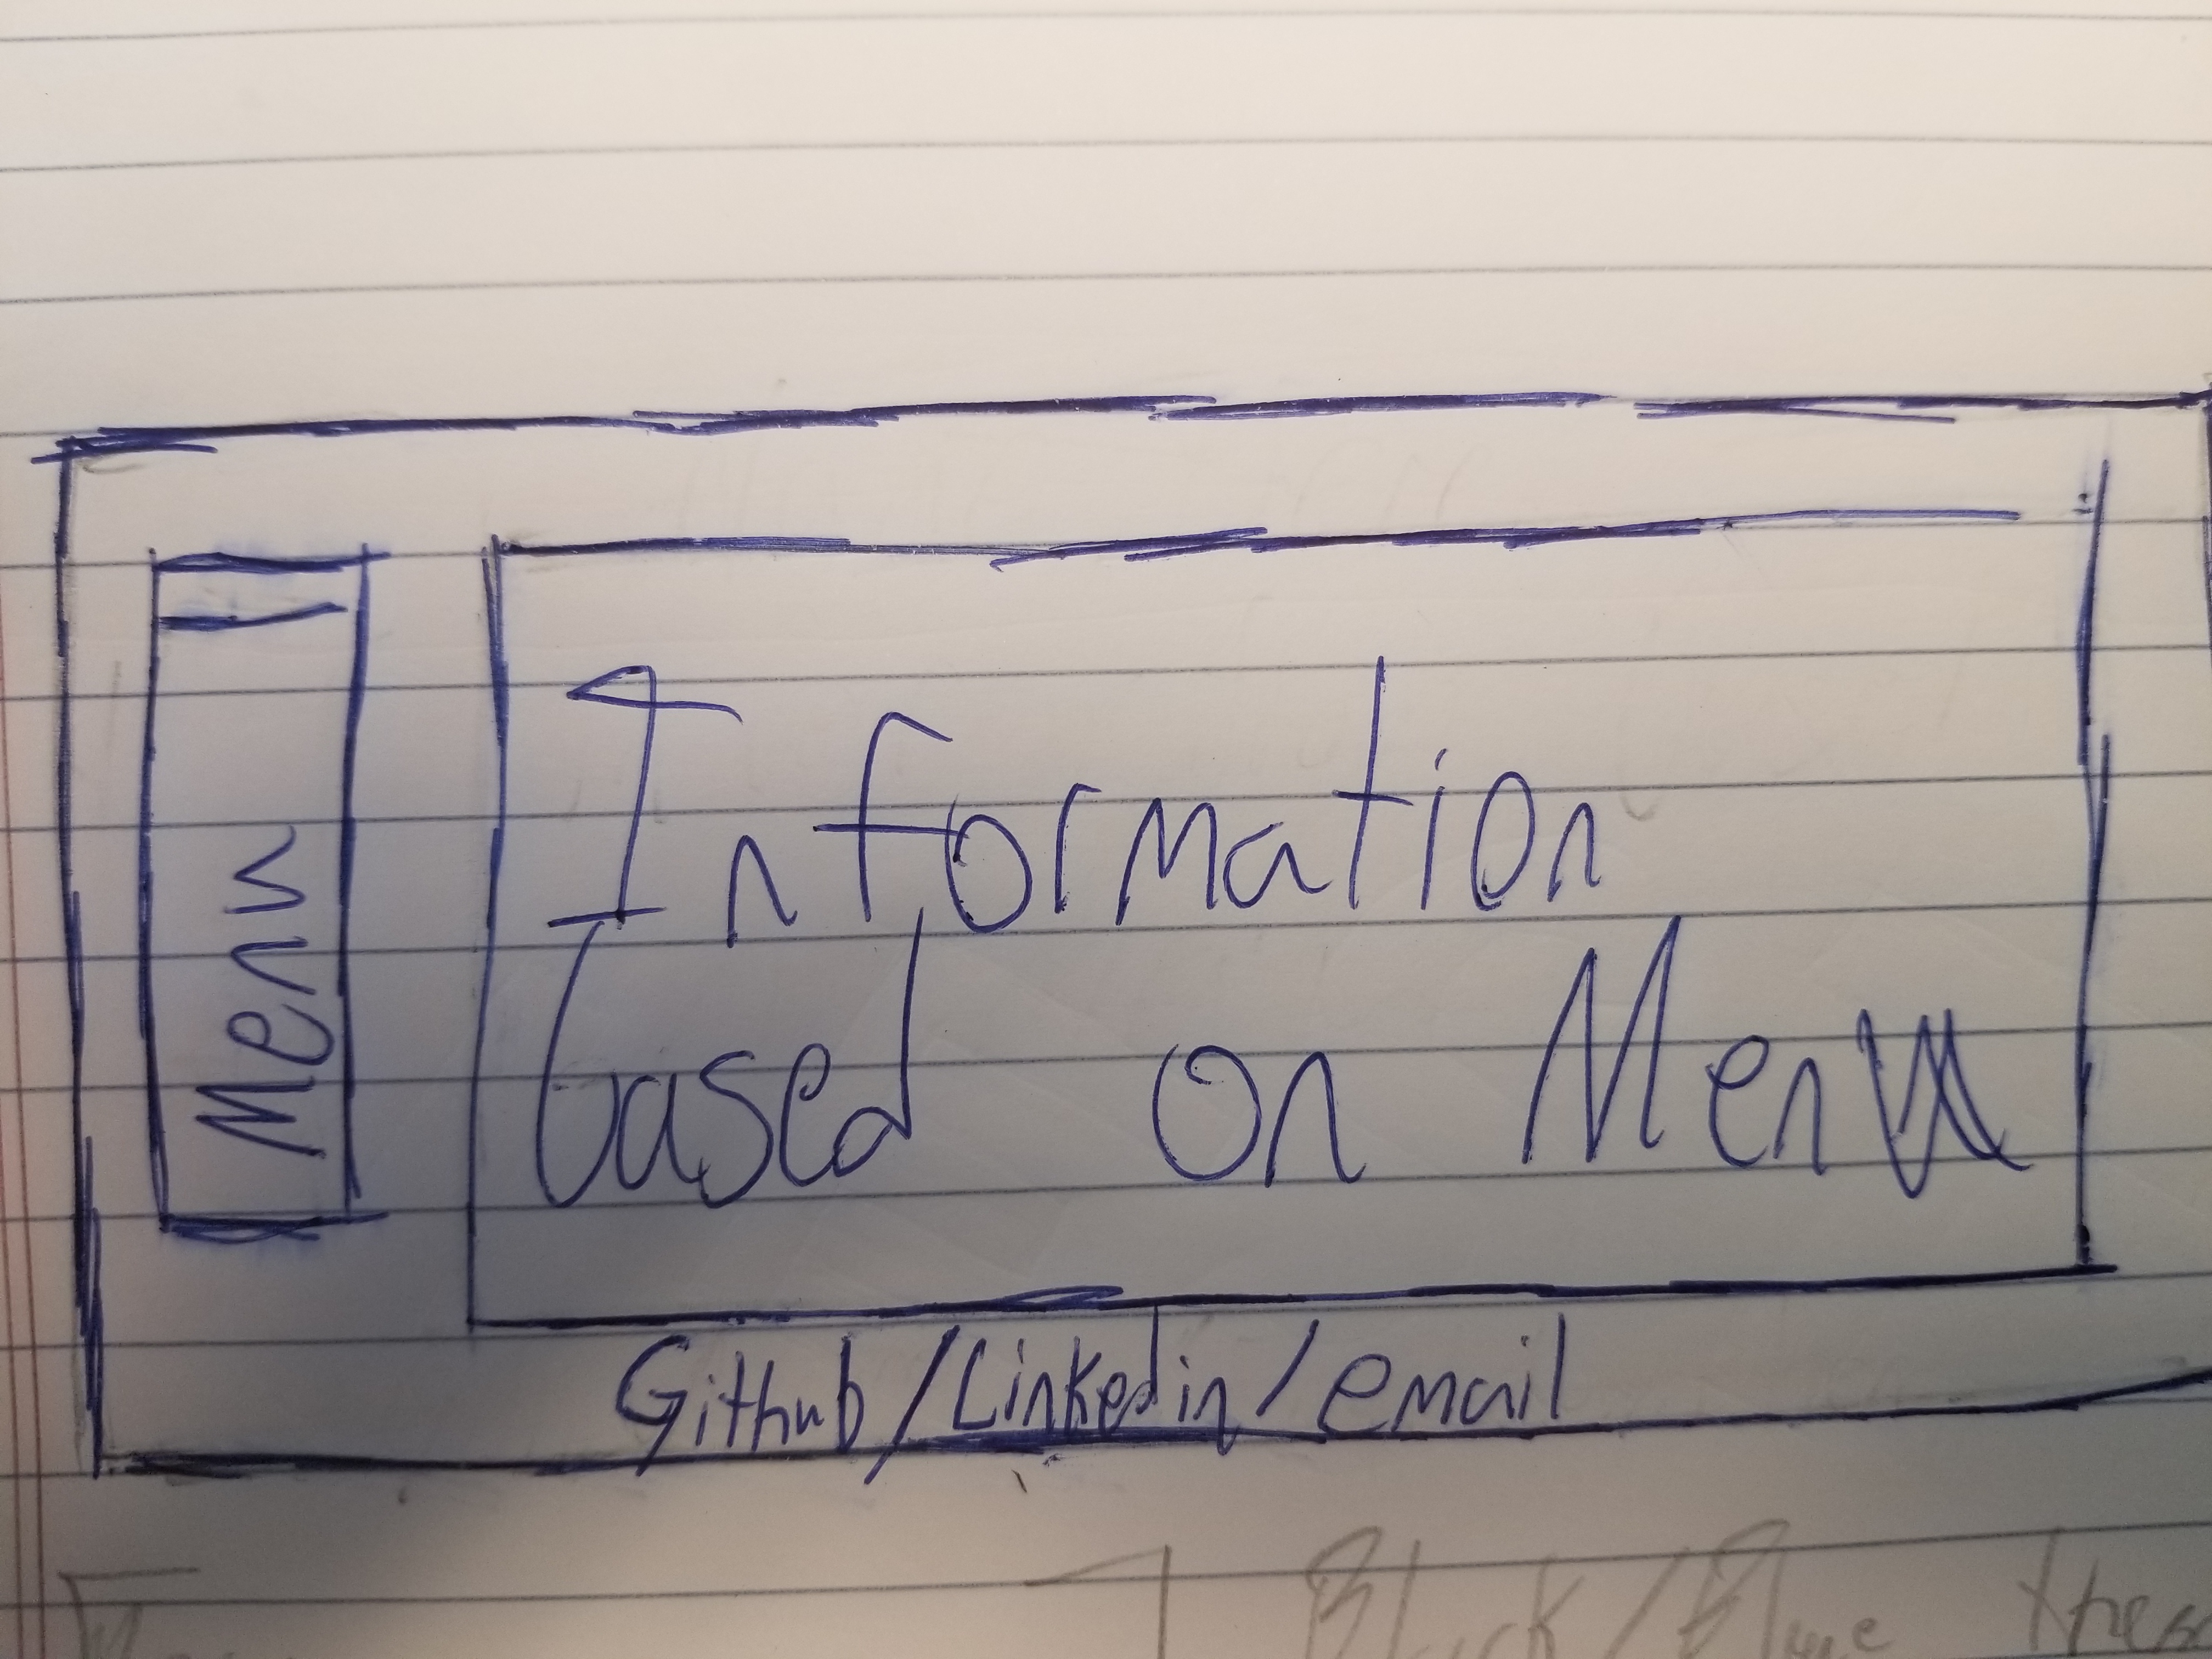 Menu
Information
based on Menu
Github/Linkedin/email
Black/Blue